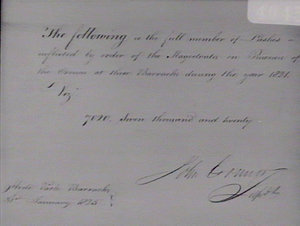 The following is the full number of Lashes
inflicted by order of the Magistrates in Presence of
the Convicts at these Barracks during the year 1834.
Viz.
7020. Seven thousand and twenty
John Connor
Hyde Park Barracks
January 1835